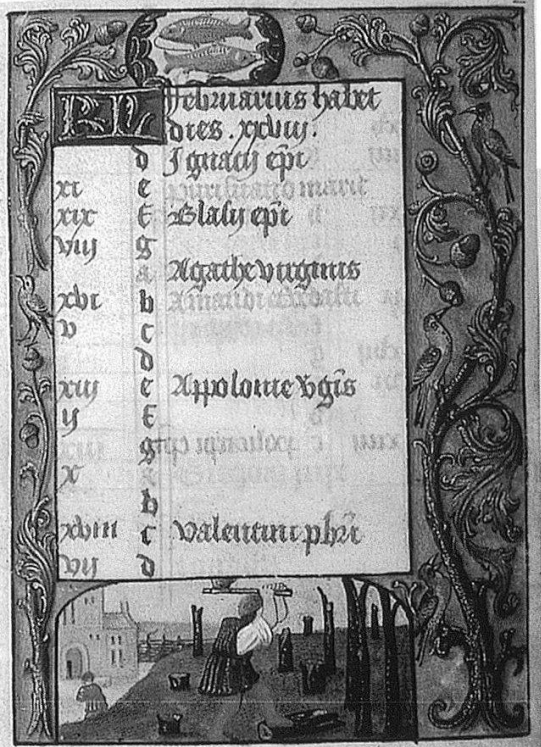 KL Februarius habet
dies . xxviij .
d Ignacij epi
xi e purificatio marie
xix f Blasij epi
viij g
a Agathe virginis
xvi b Amandi et vedasti
v c
d
xiij e Appolonie vgis
ij f
g
x a
b
xviii c Valentini pbri
vij d